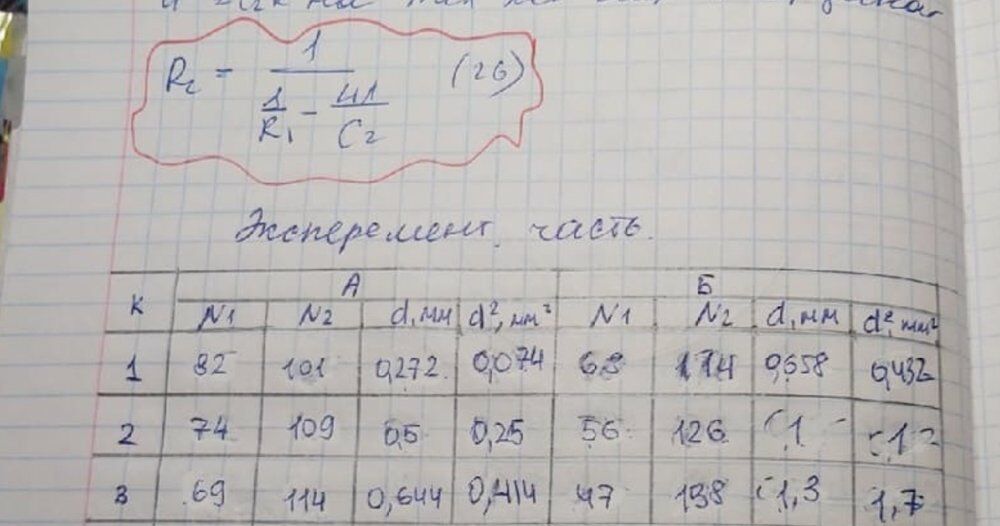 R₂ = 1 / (1/R₁ - 41/C₂) (26)
Эксперемент. часть.
К А Б
N1 N2 d,мм d²,мм² N1 N2 d,мм d²,мм²
1 82 101 0,272 0,074 68 114 0,658 0,432
2 74 109 0,5 0,25 56 126 1
3 69 114 0,644 0,414 47 138 1,3 1,7